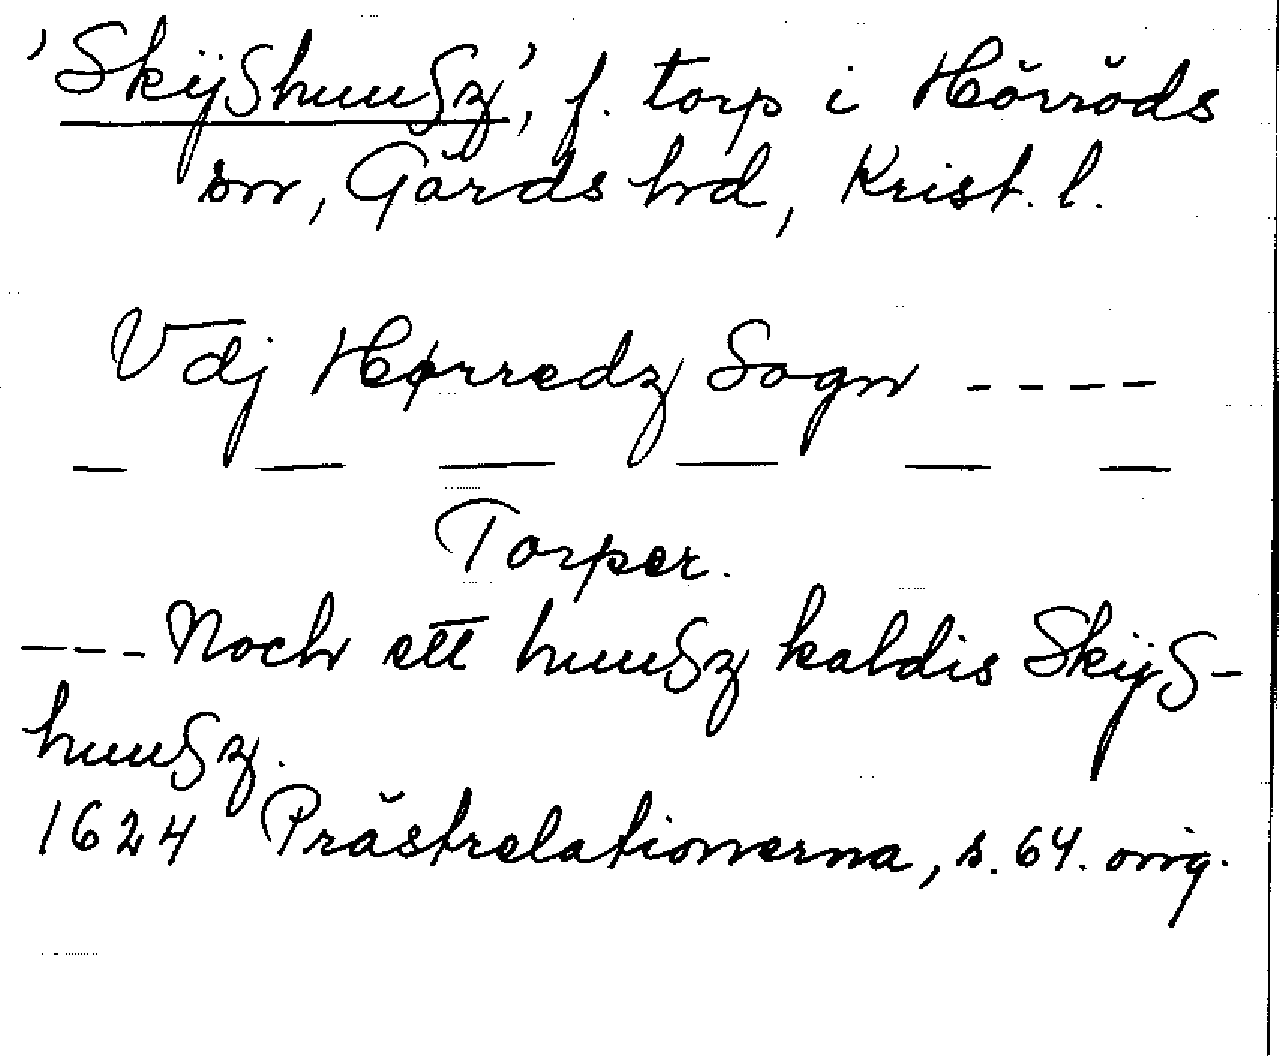 'SkijShuuSz', f. torp i Hörröds
sn, Gärds hd, Krist. l.
Vdj Hørredz Sogn ----
— — — — — —
Torper.
--- Noch ett huuSz kaldis SkijS-
huuSz.
1624 Prästrelationerna, s. 64. orig.